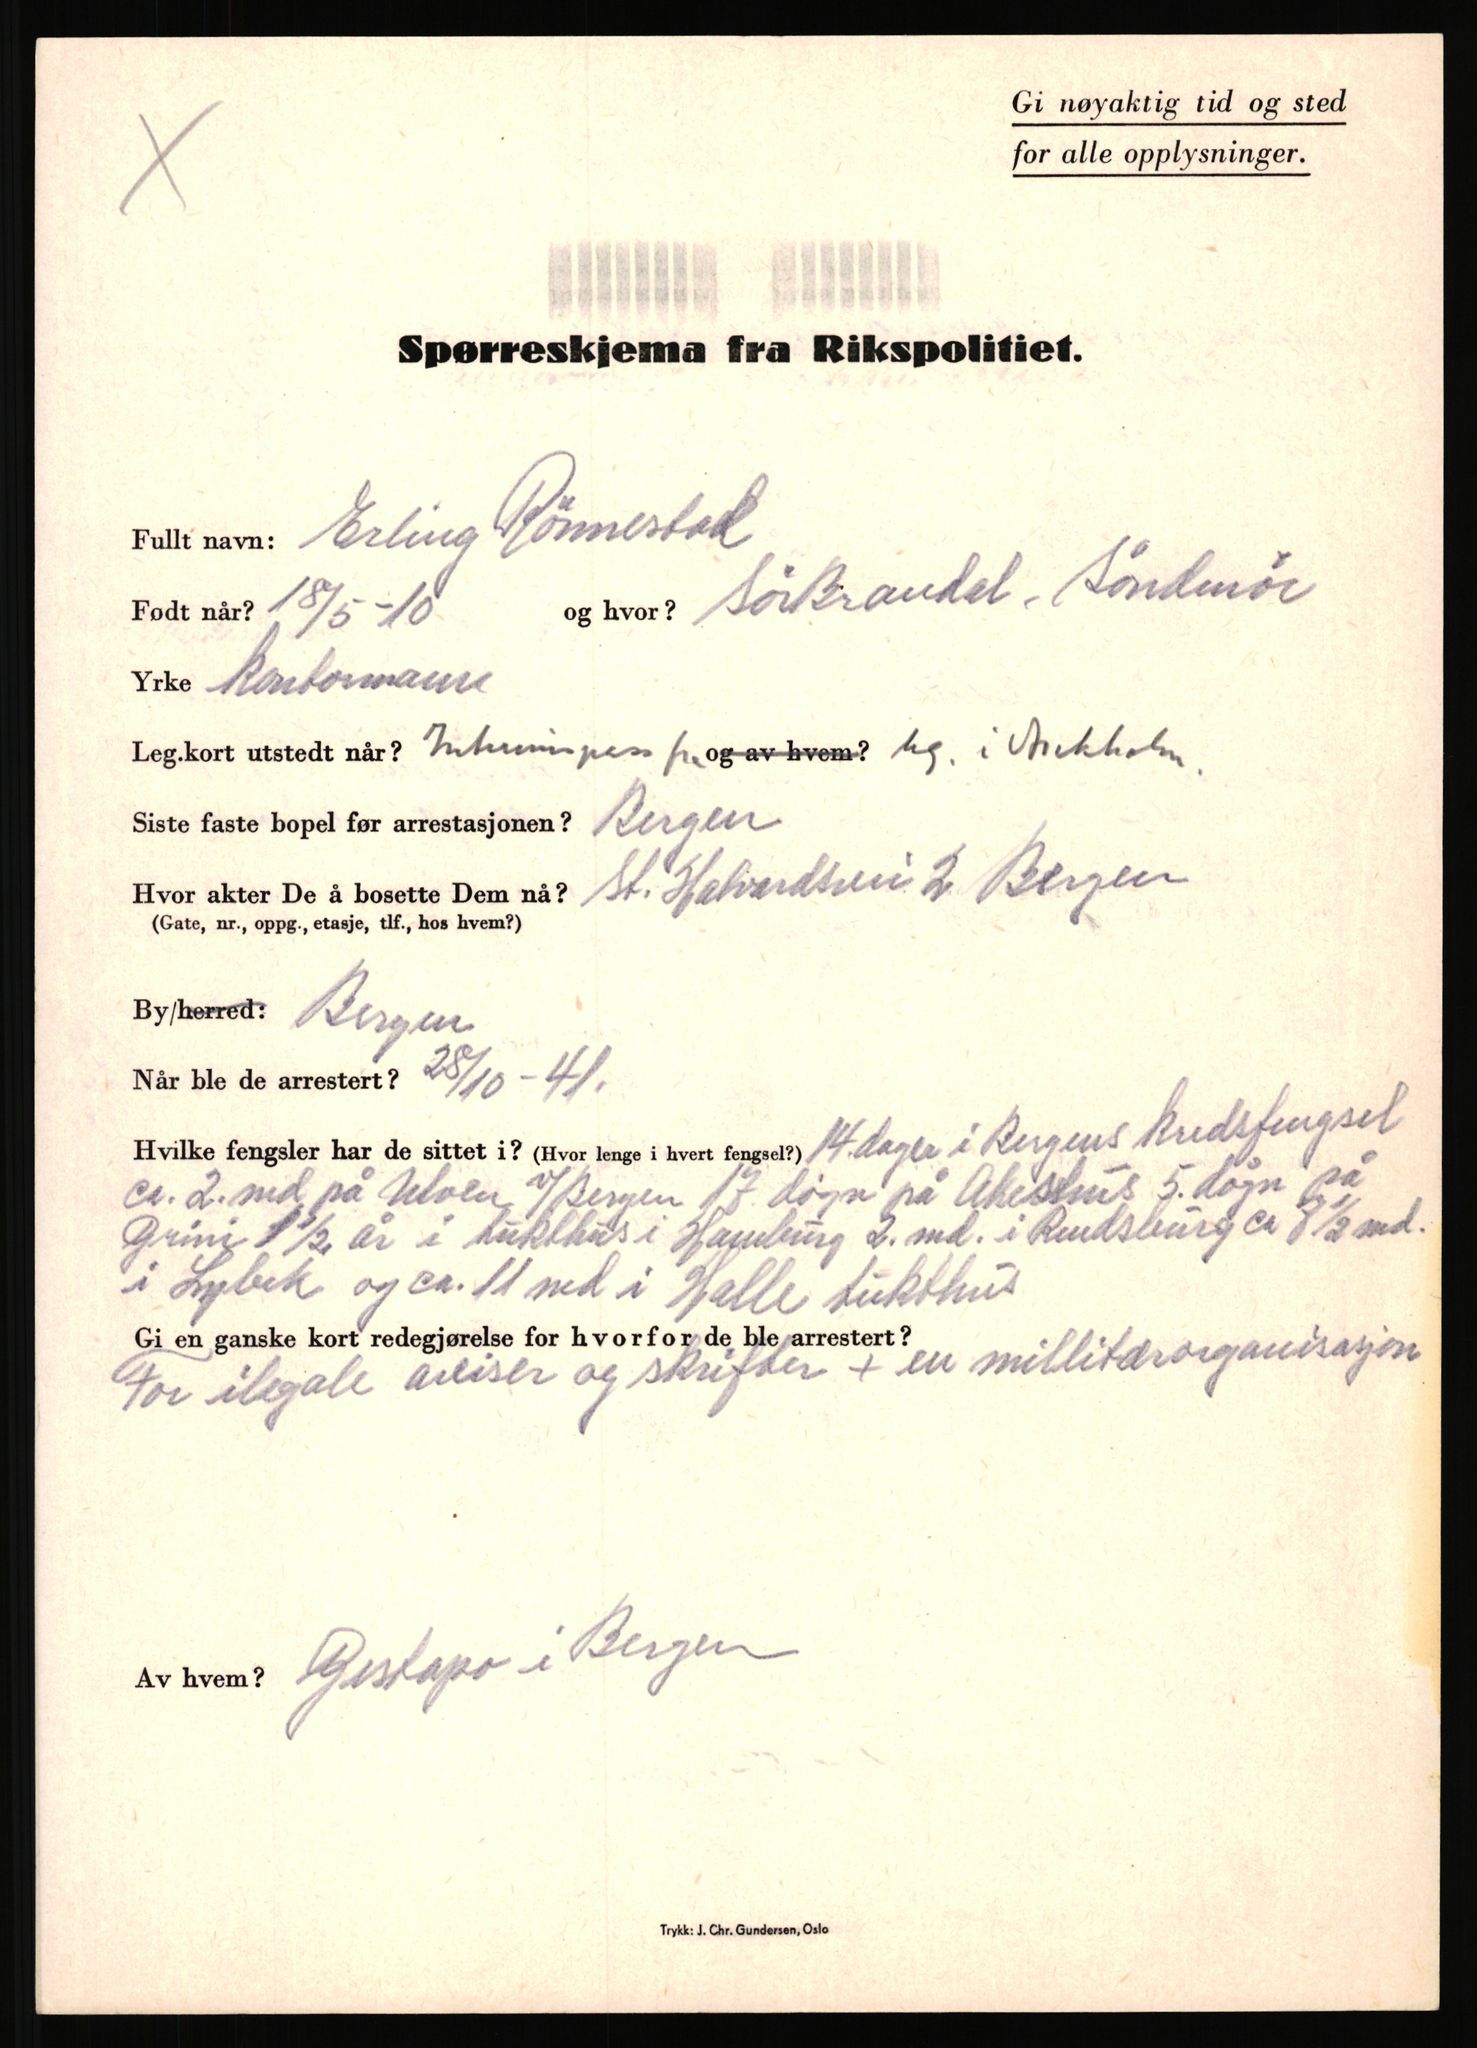 Gi nøyaktig tid og sted
for alle opplysninger.
X
Spørreskjema fra Rikspolitiet.
Fullt navn: Erling Rönnestad
Født når? 18/5-10 og hvor? Sör Brandal, Söndmör
Yrke Kontormann
Leg.kort utstedt når? Interimspass fra og av hvem? leg. i Stockholm.
Siste faste bopel før arrestasjonen? Bergen
Hvor akter De å bosette Dem nå? St. Halvardsvei 2 Bergen
(Gate, nr., oppg., etasje, tlf., hos hvem?)
By/herred: Bergen
Når ble de arrestert? 28/10-41.
Hvilke fengsler har de sittet i? (Hvor lenge i hvert fengsel?) 14. dager i Bergens Kredsfengsel
ca. 2. md på Ulven v/Bergen 17 døgn på Akeshus 5. døgn på
Grini 1 1/2 år i tukthus i Hamburg 2. md. i Rendsburg ca 8 1/2 md.
i Lybek og ca. 11 md i Halle tukthus
Gi en ganske kort redegjørelse for hvorfor de ble arrestert?
For ilegale aviser og skrifter + en millitærorganisasjon
Av hvem? Gestapo i Bergen
Trykk: J. Chr. Gundersen, Oslo